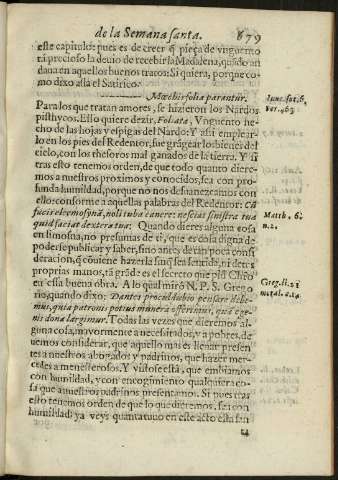 de la Semana santa. 879
este capitulo: pues es de creer q̃ pieça de vnguento
tã precioso la deuio de recebir la Madalena, quãdo an
daua en aquellos buenos tratos: Si quiera, porque co-
mo dixo assi el Satirico.
Mæchis folia parantur.
Iuue. sat. 6.
Para los que tratan amores, se hizieron los Nardos
ver. 463
pisthycos. Ello quiere dezir, Foliata, Vnguento he-
cho de las hojas y espigas del Nardo: Y assi emplear-
lo en los pies del Redentor, fue grãgear los bienes del
cielo, con los thesoros mal ganados de la tierra. Y si
tras esto tenemos orden, de que todo quanto diere-
mos a nuestros proximos y conocidos, sea con pro-
funda humildad, porque no nos desuanezcamos con
ello: conforme a aquellas palabras del Redentor: Cũ
facis elemosynã, noli tuba canere: nesciat sinistra tua
Matth. 6.
quid faciat dextera tua: Quando dieres alguna cosa
n. 2.
en limosna, no presumas de ti, que es cosa digna de
poderse publicar y saber, sino antes de tan poca consi
deracion, q̃ cõuiene hazerla sin q̃ sea sentida, ni de tus
proprias manos, tã grãde es el secreto que pid Christo
en essa buena obra. A lo qual mirò N. P. S. Grego
Greg. li. 21
rio, quando dixo: Dantes proculdubio pensare debe-
moral. c. 14
mus, quia patronis potius munera offerimus, quã ege-
nis dona largimur. Todas las vezes que dieremos al-
guna cosa, mayormente a necessitados, y a pobres, de
uemos considerar, que aquello mas es lleuar presen-
tes a nuestros abogados y padrinos, que hazer mer-
cedes a menesterosos. Y visto esta està, que embiamos
con humildad, y con encogimiento qualquiera co-
sa que a nuestros padrinos presentamos. Si pues tras
esto tenemos orden de que lo que dieremos, sea con
humildad; ya veys quanta tuuo en este acto esta san
ta